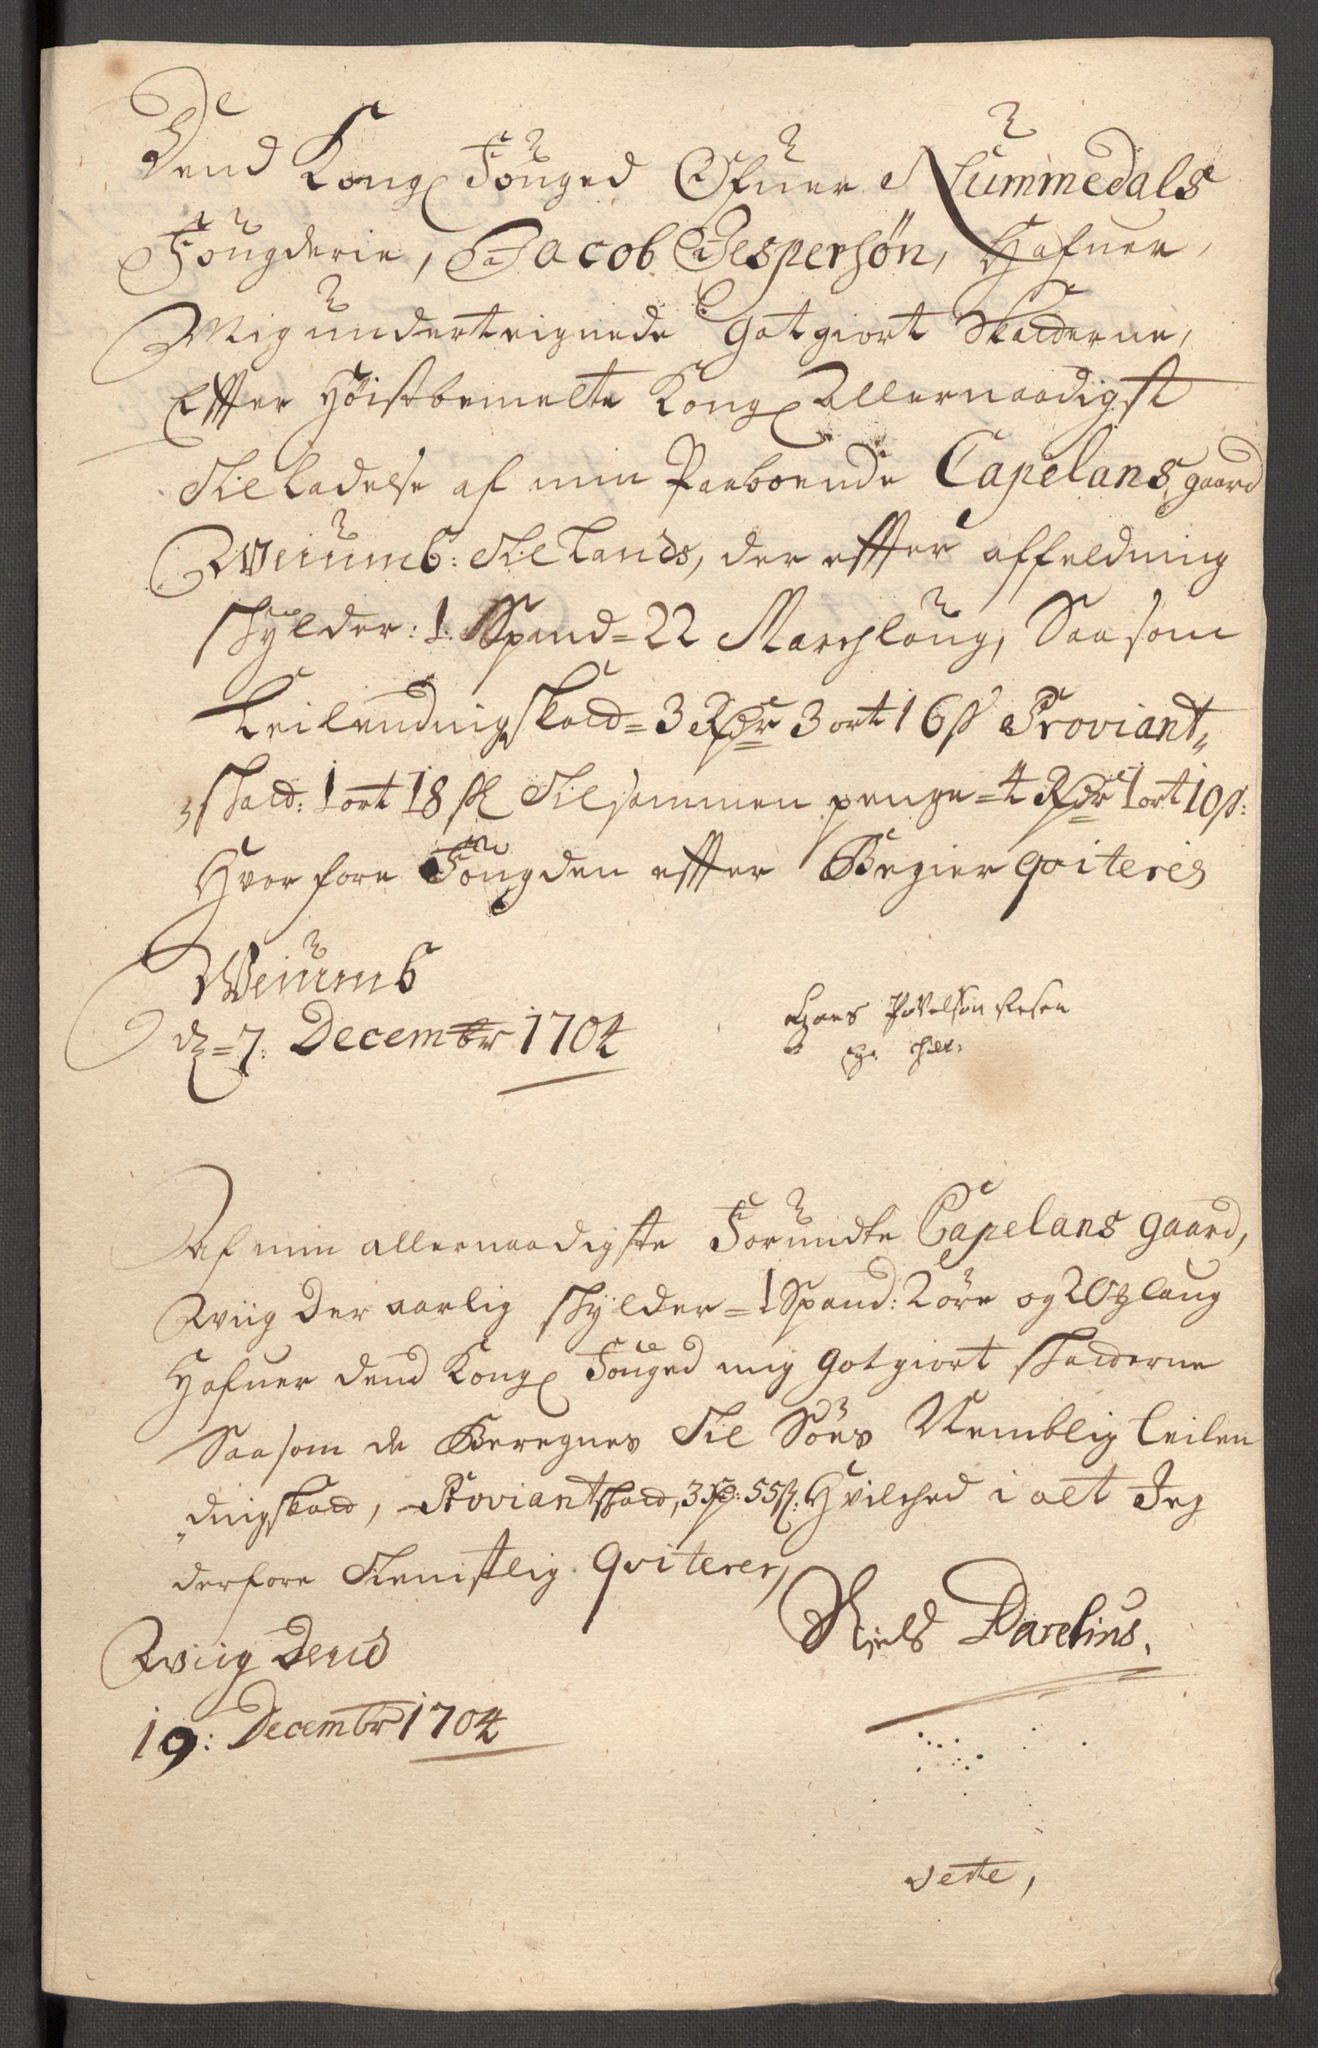 Dend Kong: Fouged Ofuer Nummedals
Fougderie, Jacob Jespersøn, Hafuer,
Mig underteignede gotgiort Skatterne,
Efter Høistbemelte Kong: Allernaadigst
Tilladelse af min Paaboende Capelans gaard
Weiumb: Til Lands, der efter affeldning
skylder: 1 Spand = 22 Marchlaug, Saasom
Leilendingskatt = 3 Rdr 3 ort 16 s Proviant
skatt: 1 ort 18 s Tilsammen penge = 4 Rdr 1 ort 10 s:
Hvorfore Fougden efter Begier qviteris
Weiumb
d = 7: Decembr 1704
Hans Povelsøn Resen
Af min allernaadigste Forundte Capelans gaard,
Wiig Der aarlig skylder = 1 Spand: 2 øre og 20 laug
Hafuer dend Kong: Fouged mig gotgiort skatterne
Saasom de Beregnes Til Søes Nemblig Leilen
dingskatt, Proviantskatt, 3 Rd: 55 s: Hvilched i alt Jeg
derfore Tienistlig Qviterer,
Wiig Dend
19: Decembr 1704
Niels Parelius.
verte,